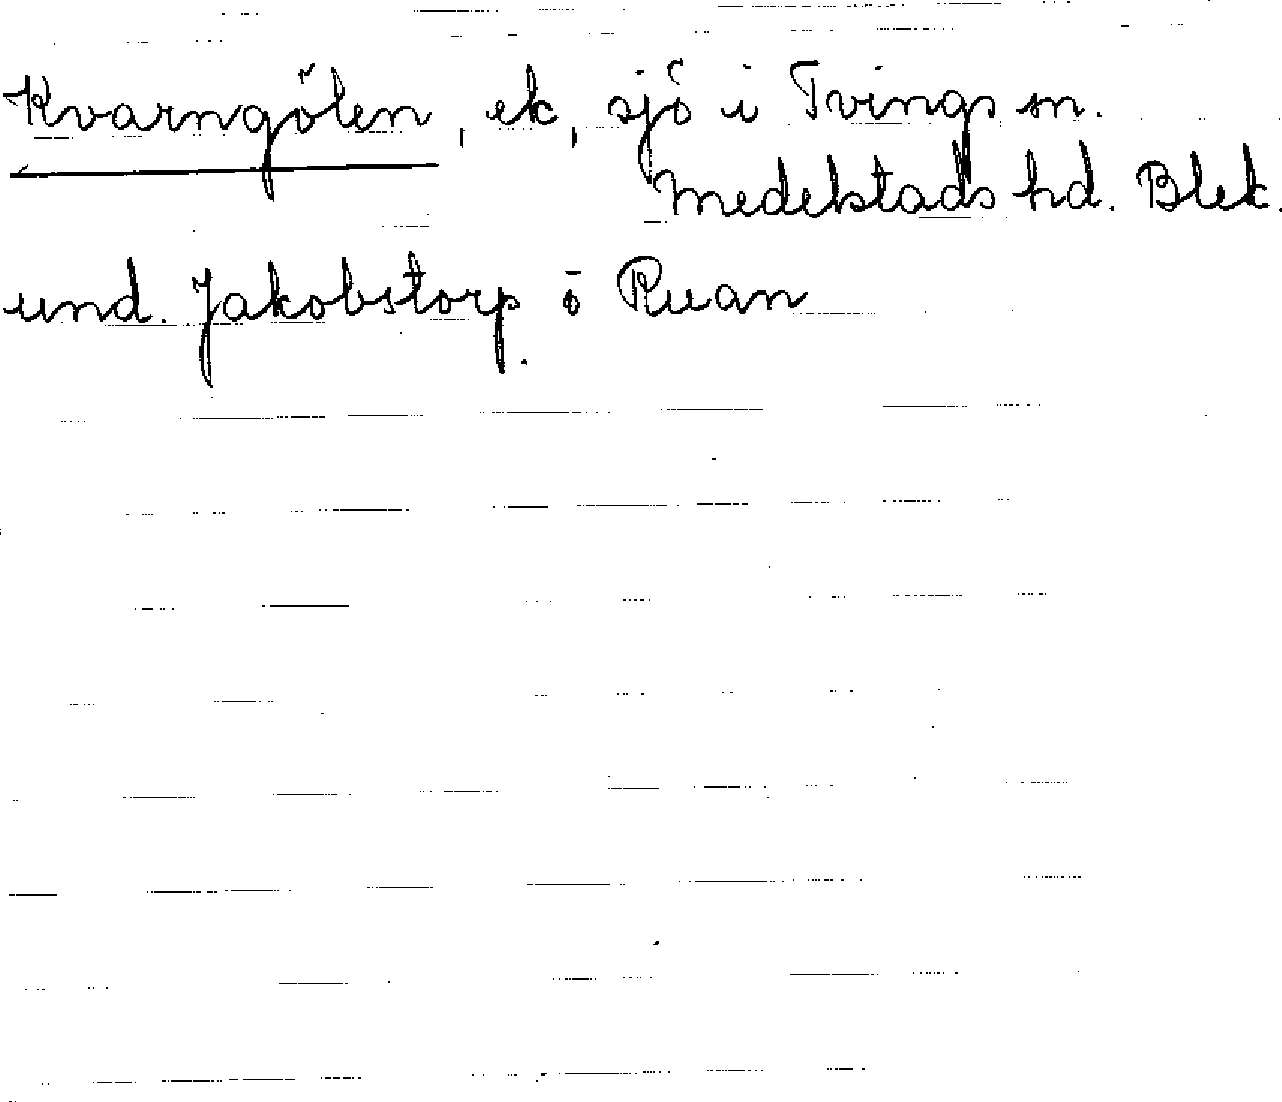 Kvarngölen, ek, sjö i Tvings sn.
Medelstads hd. Blek.
und. Jakobstorp. ö Ruan